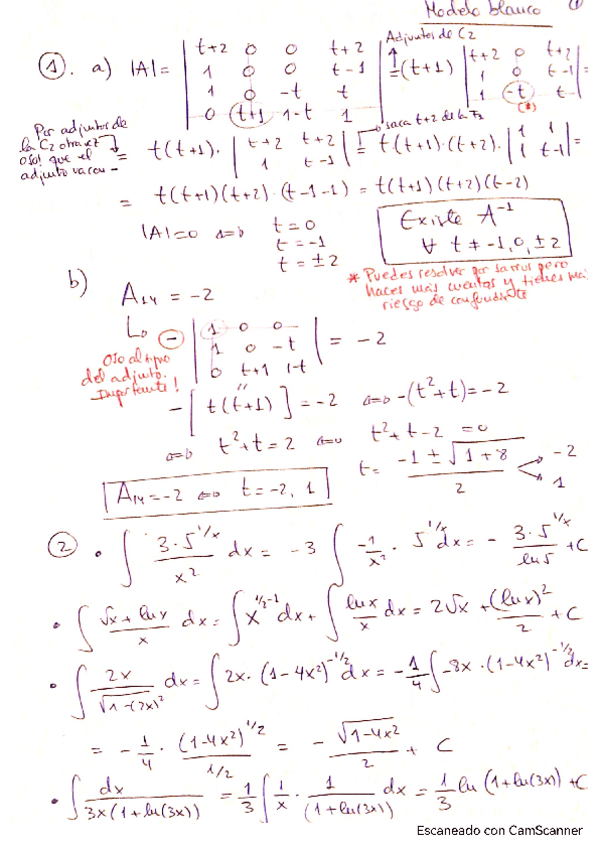 Modelo blanco ①
Adjuntos de C2
①. a) |A| = | t+2 0 0 t+2 | = (t+1) | t+2 0 t+2 |
| 1 0 0 t-1 | | 1 0 t-1 | =
| 1 0 -t t | | 1 -t t- |
| 0 t+1 1-t 1 | (*)
Por adjuntos de
la C2 otra vez
OJO! que el
adjunto va con -
saca t+2 de la F1
= t(t+1) · | t+2 t+2 | = t(t+1)·(t+2) · | 1 1 | =
| 1 t-1 | | 1 t-1 |
= t(t+1)(t+2)·(t-1-1) = t(t+1)(t+2)(t-2)
|A|=0 ⇔ t=0
t=-1
t=±2
Existe A⁻¹
∀ t ≠ -1, 0, ±2
* Puedes resolver por sarrus pero
haces más cuentas y tienes más
riesgo de confundirte
b) A₁₄ = -2
↳ - | 1 0 0 | = -2
| 1 0 -t |
| 0 t+1 1-t |
OJO al signo
del adjunto.
Importante!
-[ t(t+1) ] = -2 ⇔ -(t²+t) = -2
⇔ t²+t=2 ⇔ t²+t-2=0
t = (-1 ± √1+8)/2 → -2
→ 1
A₁₄=-2 ⇔ t=-2, 1
② • ∫ 3·5^(1/x)/x² dx = -3 ∫ -1/x² · 5^(1/x) dx = - 3·5^(1/x)/ln5 + C
• ∫ (√x + lnx)/x dx = ∫ x^(1/2-1) dx + ∫ lnx/x dx = 2√x + (lnx)²/2 + C
• ∫ 2x/√(1-(2x)²) dx = ∫ 2x·(1-4x²)^(-1/2) dx = -1/4 ∫ -8x·(1-4x²)^(-1/2) dx =
= -1/4 · (1-4x²)^(1/2)/(1/2) = - √(1-4x²)/2 + C
• ∫ dx/(3x(1+ln(3x))) = 1/3 ∫ 1/x · 1/(1+ln(3x)) dx = 1/3 ln(1+ln(3x)) + C
Escaneado con CamScanner